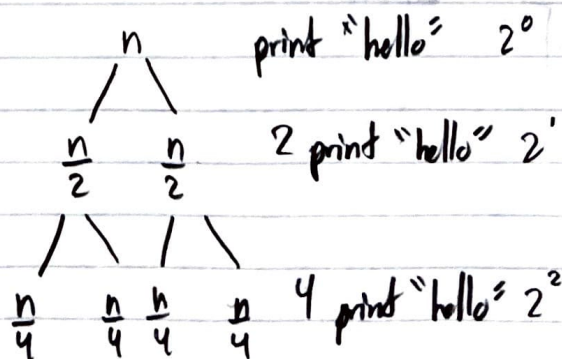 n print "hello" 2⁰
n/2 n/2 2 print "hello" 2¹
n/4 n/4 n/4 n/4 4 print "hello" 2²